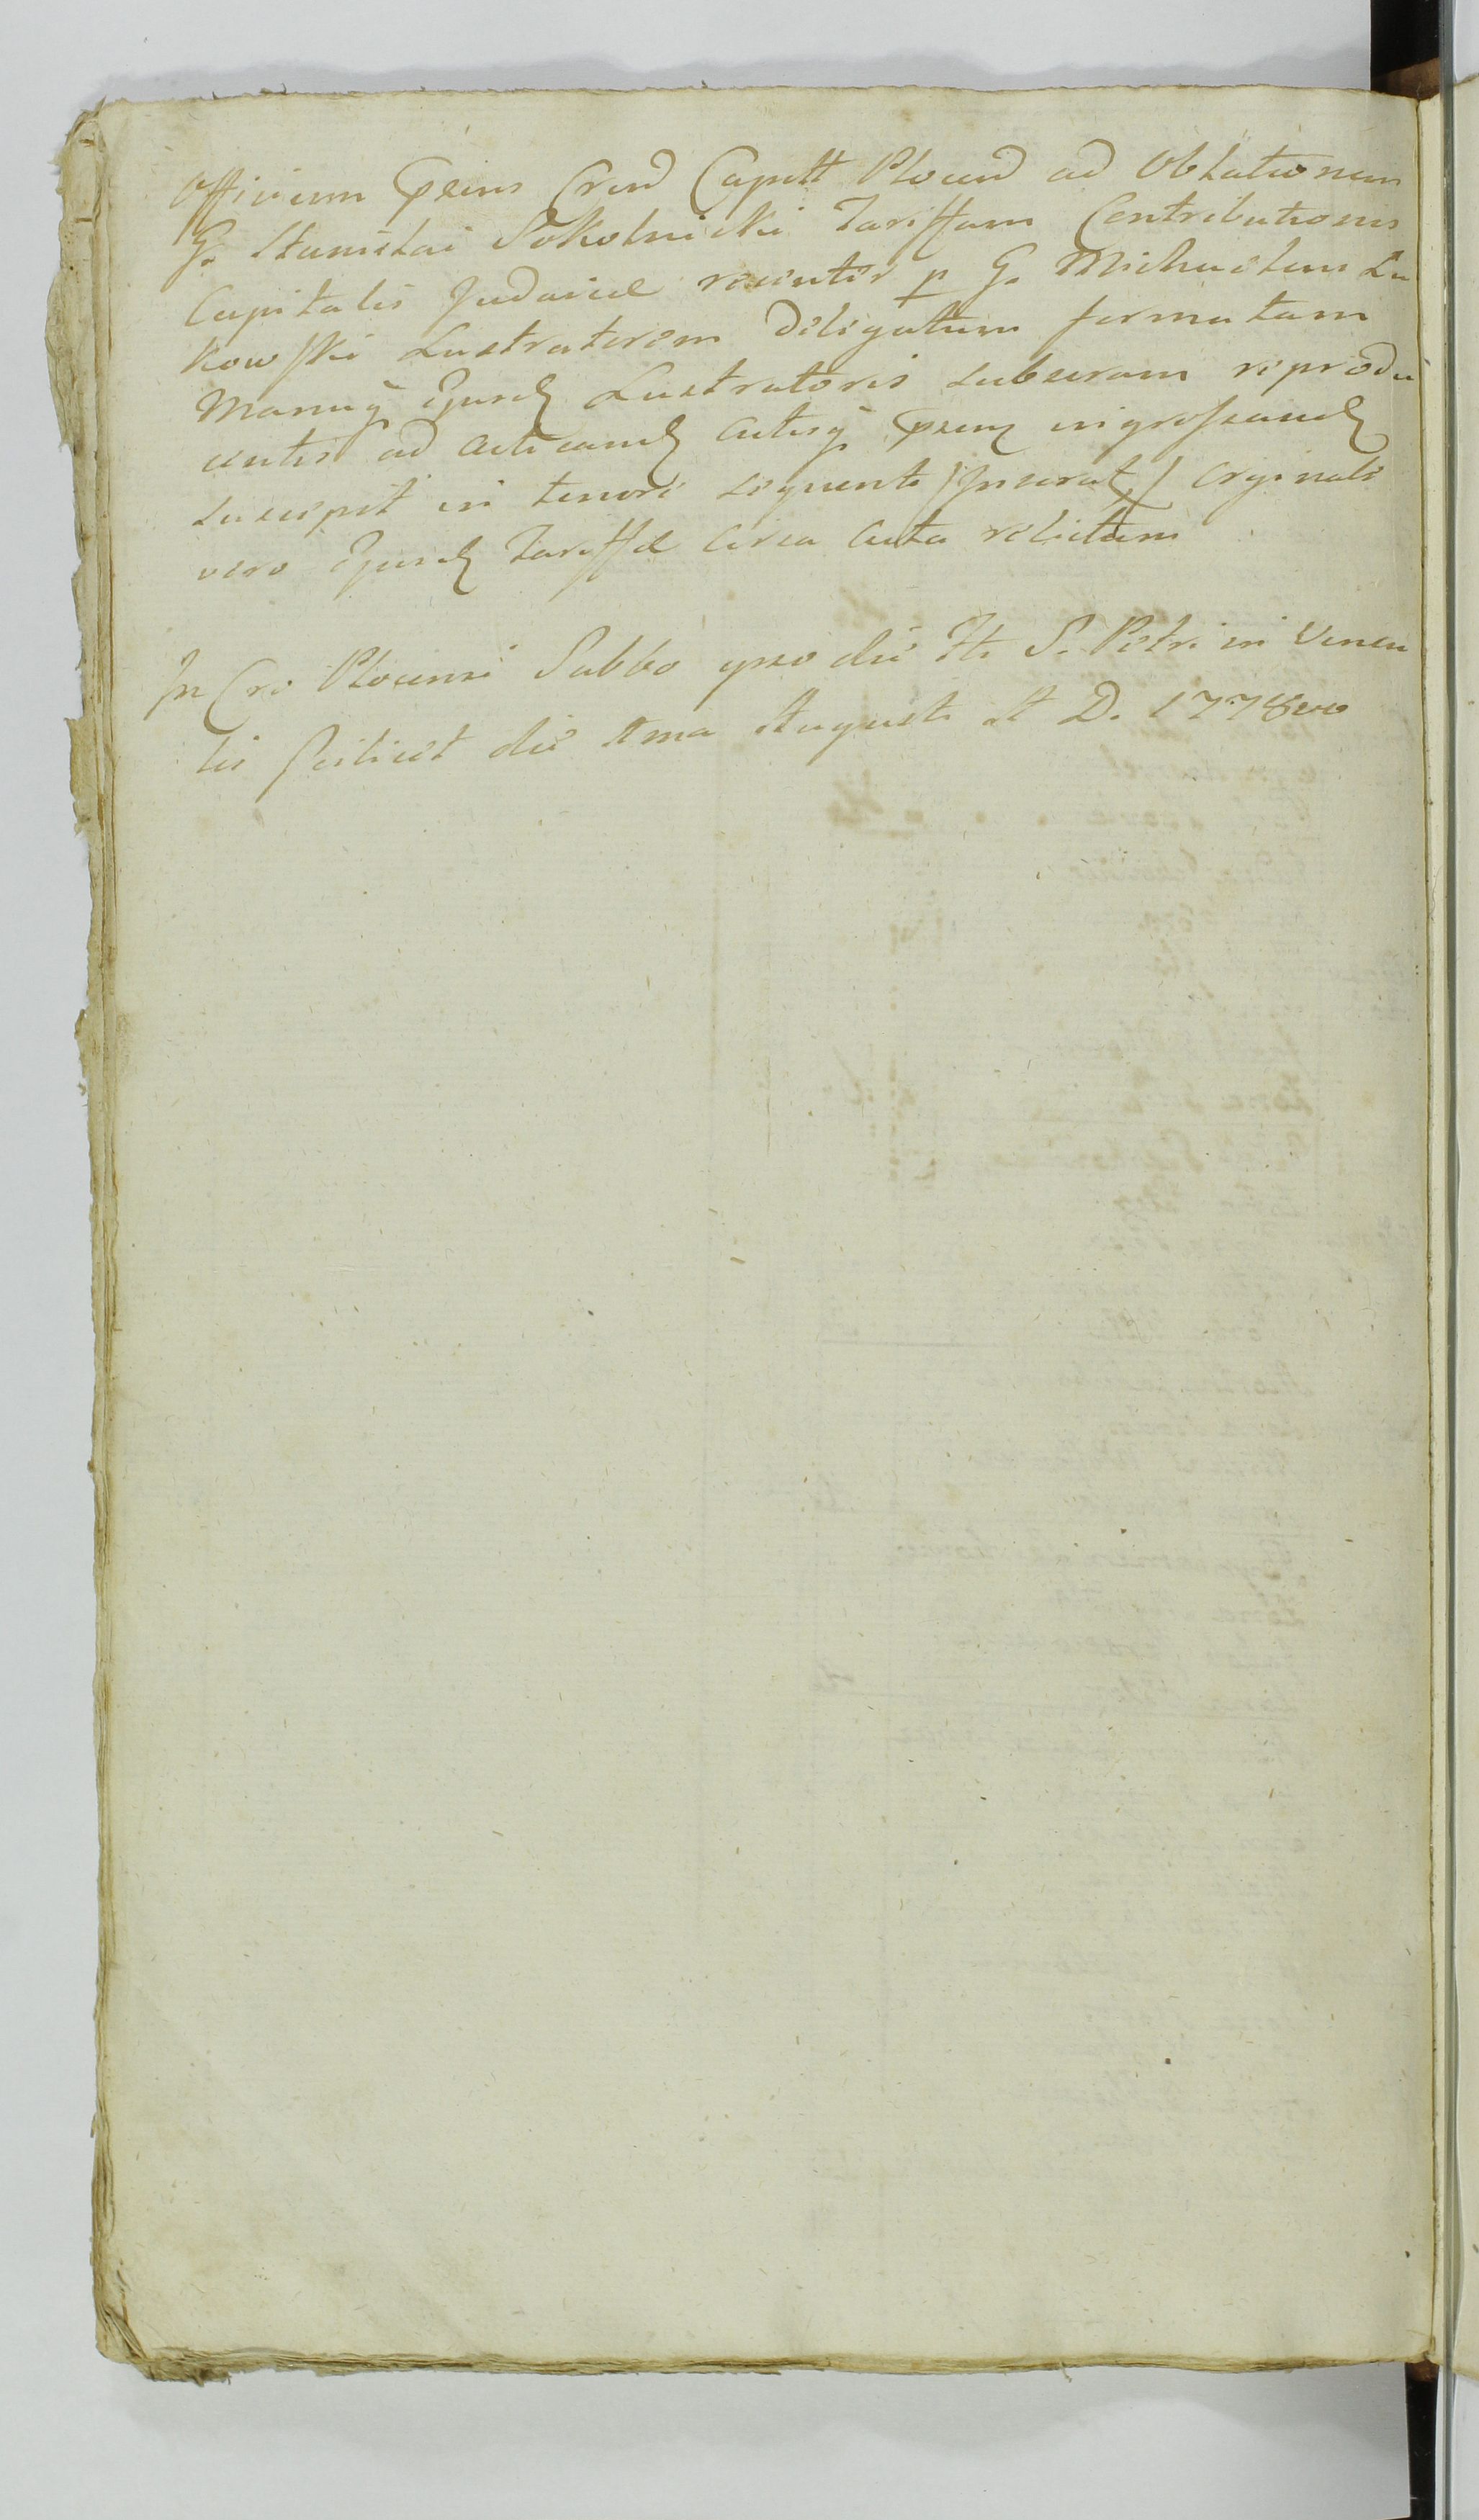 Officium Gens Crnd Capitt Plocend ad Oblationem
G. Stanislai Sokolnicki Tariffam Contributionis
Capitalis Judaicæ recenter p G. Michaelem Lu
kowski Lustratorem Delegatum formatam
Manuq Ejusd Lustratoris subscram reprodu
centis ad acticand Actisq ingrossand
suscepit in tenore sequenti /Inserat,/ Orginali
vero Ejusd Tariffæ circa Acta relictum

In Cro Plocensi Sabbo ipso die fti S. Petri in Vincu
lis scilicet die 1ma Augusti A D. 1778vo